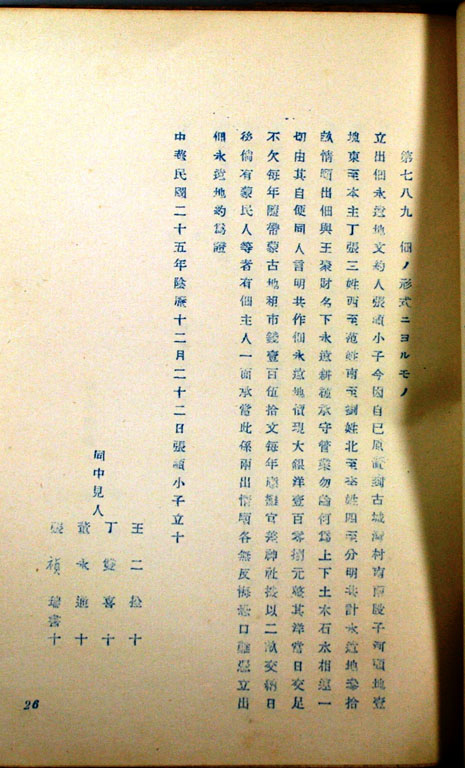 第七八九 佃ノ形式ニヨルモノ
立出佃永遠地文約人張禎小子今因自己原置到古城灣村南南股子河頭地壹
塊東至本主丁張三姓西至范姓南至劉姓北至李姓四至分明共計永遠地拾
情願出佃與王聚財名下永遠耕種承守管業勿論何爲上下土木石水相連一
切由其自便同人言明共作佃永遠地價現大銀洋壹百零捌元整其洋當日交足
不欠每年隨帶蒙古地租市錢壹百伍拾文每年應差官差神社按以二畝交納日
後倘有蒙民人等者有佃主人一面承當此係兩出情願各無反悔恐口難憑立出
佃永遠地約爲證
中華民國二十五年陰曆十二月二十二日張禎小子立十
同中見人
王二十
丁喜十
董永通十
張禎瑞書十
26